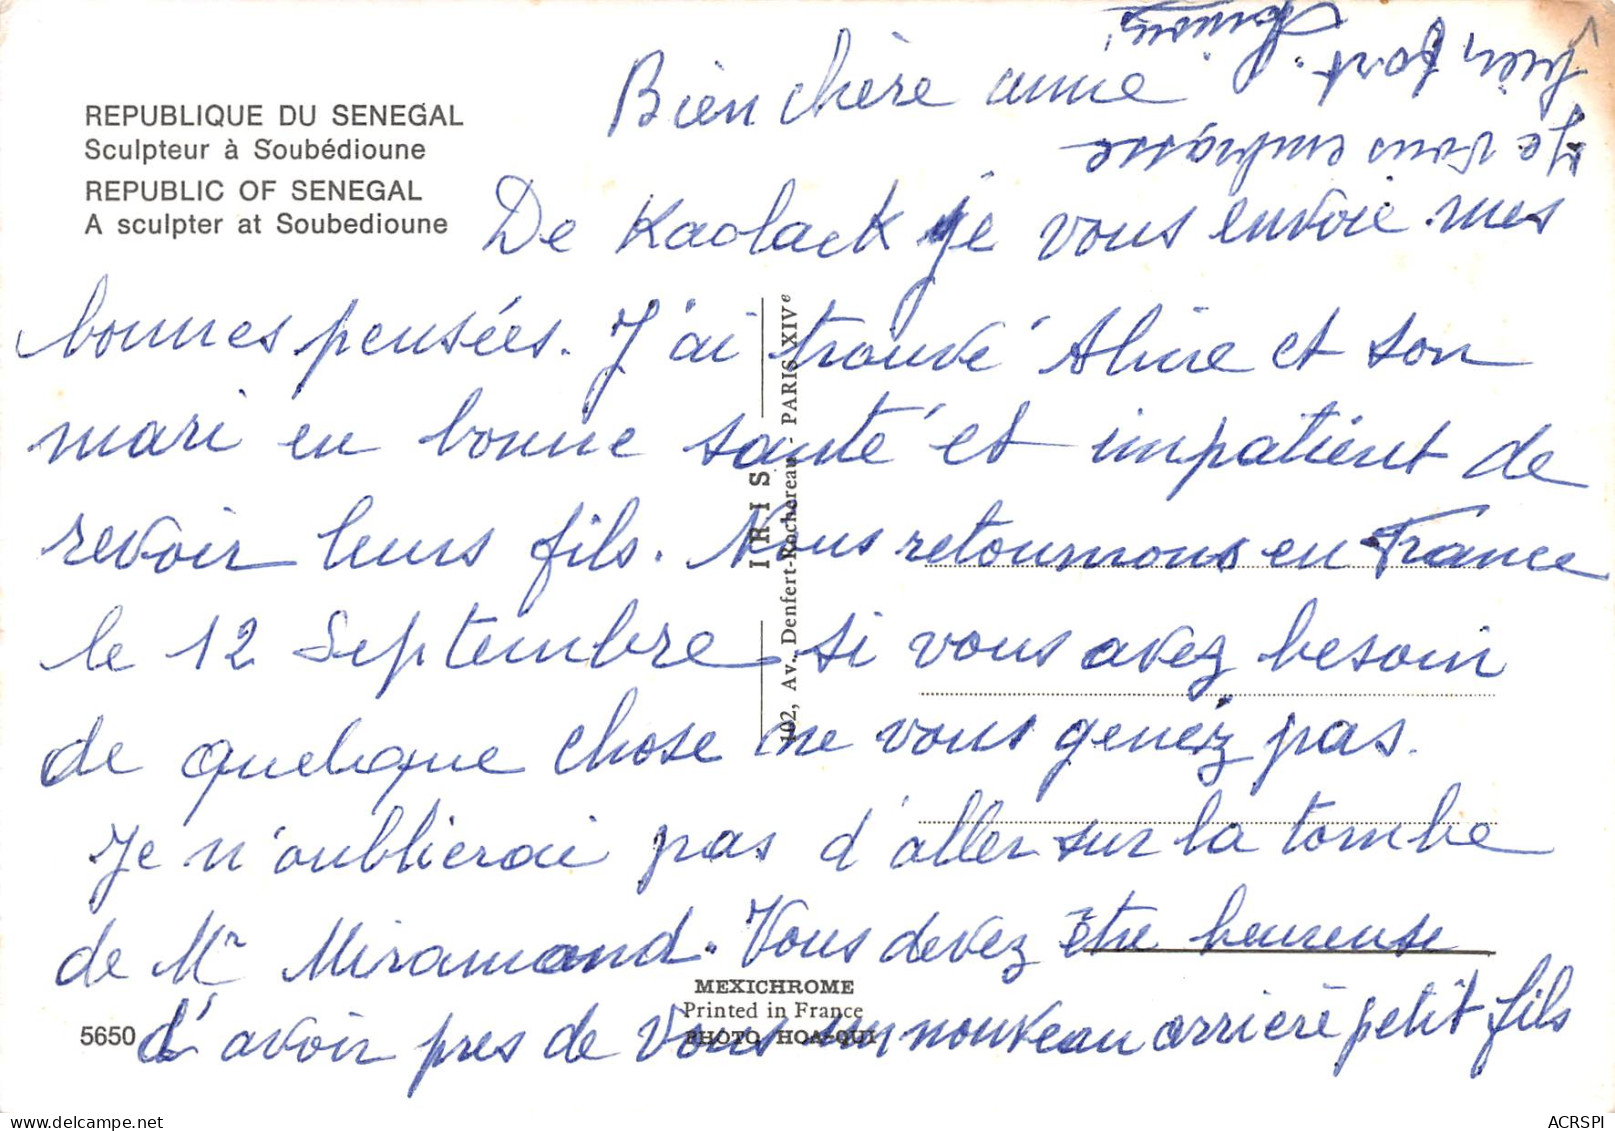 REPUBLIQUE DU SENEGAL
Sculpteur à Soubédioune
REPUBLIC OF SENEGAL
A sculpter at Soubedioune
Bien chère amie
De Kaolack je vous envoie mes
bonnes pensées. J'ai trouvé Aline et son
mari en bonne santé et impatient de
revoir leurs fils. Nous retournons en France
le 12 Septembre si vous avez besoin
de quelque chose ne vous genez pas.
Je n'oublierai pas d'aller sur la tombe
de Mr Miramand. Vous devez être heureuse
d'avoir pres de vous un nouveau arrière petit fils
Je vous embrasse
bien fort.
IRIS
102, Av. Denfert-Rochereau - PARIS XIVe
MEXICHROME
Printed in France
PHOTO HOA-QUI
5650
delcampe.net
ACRSPI